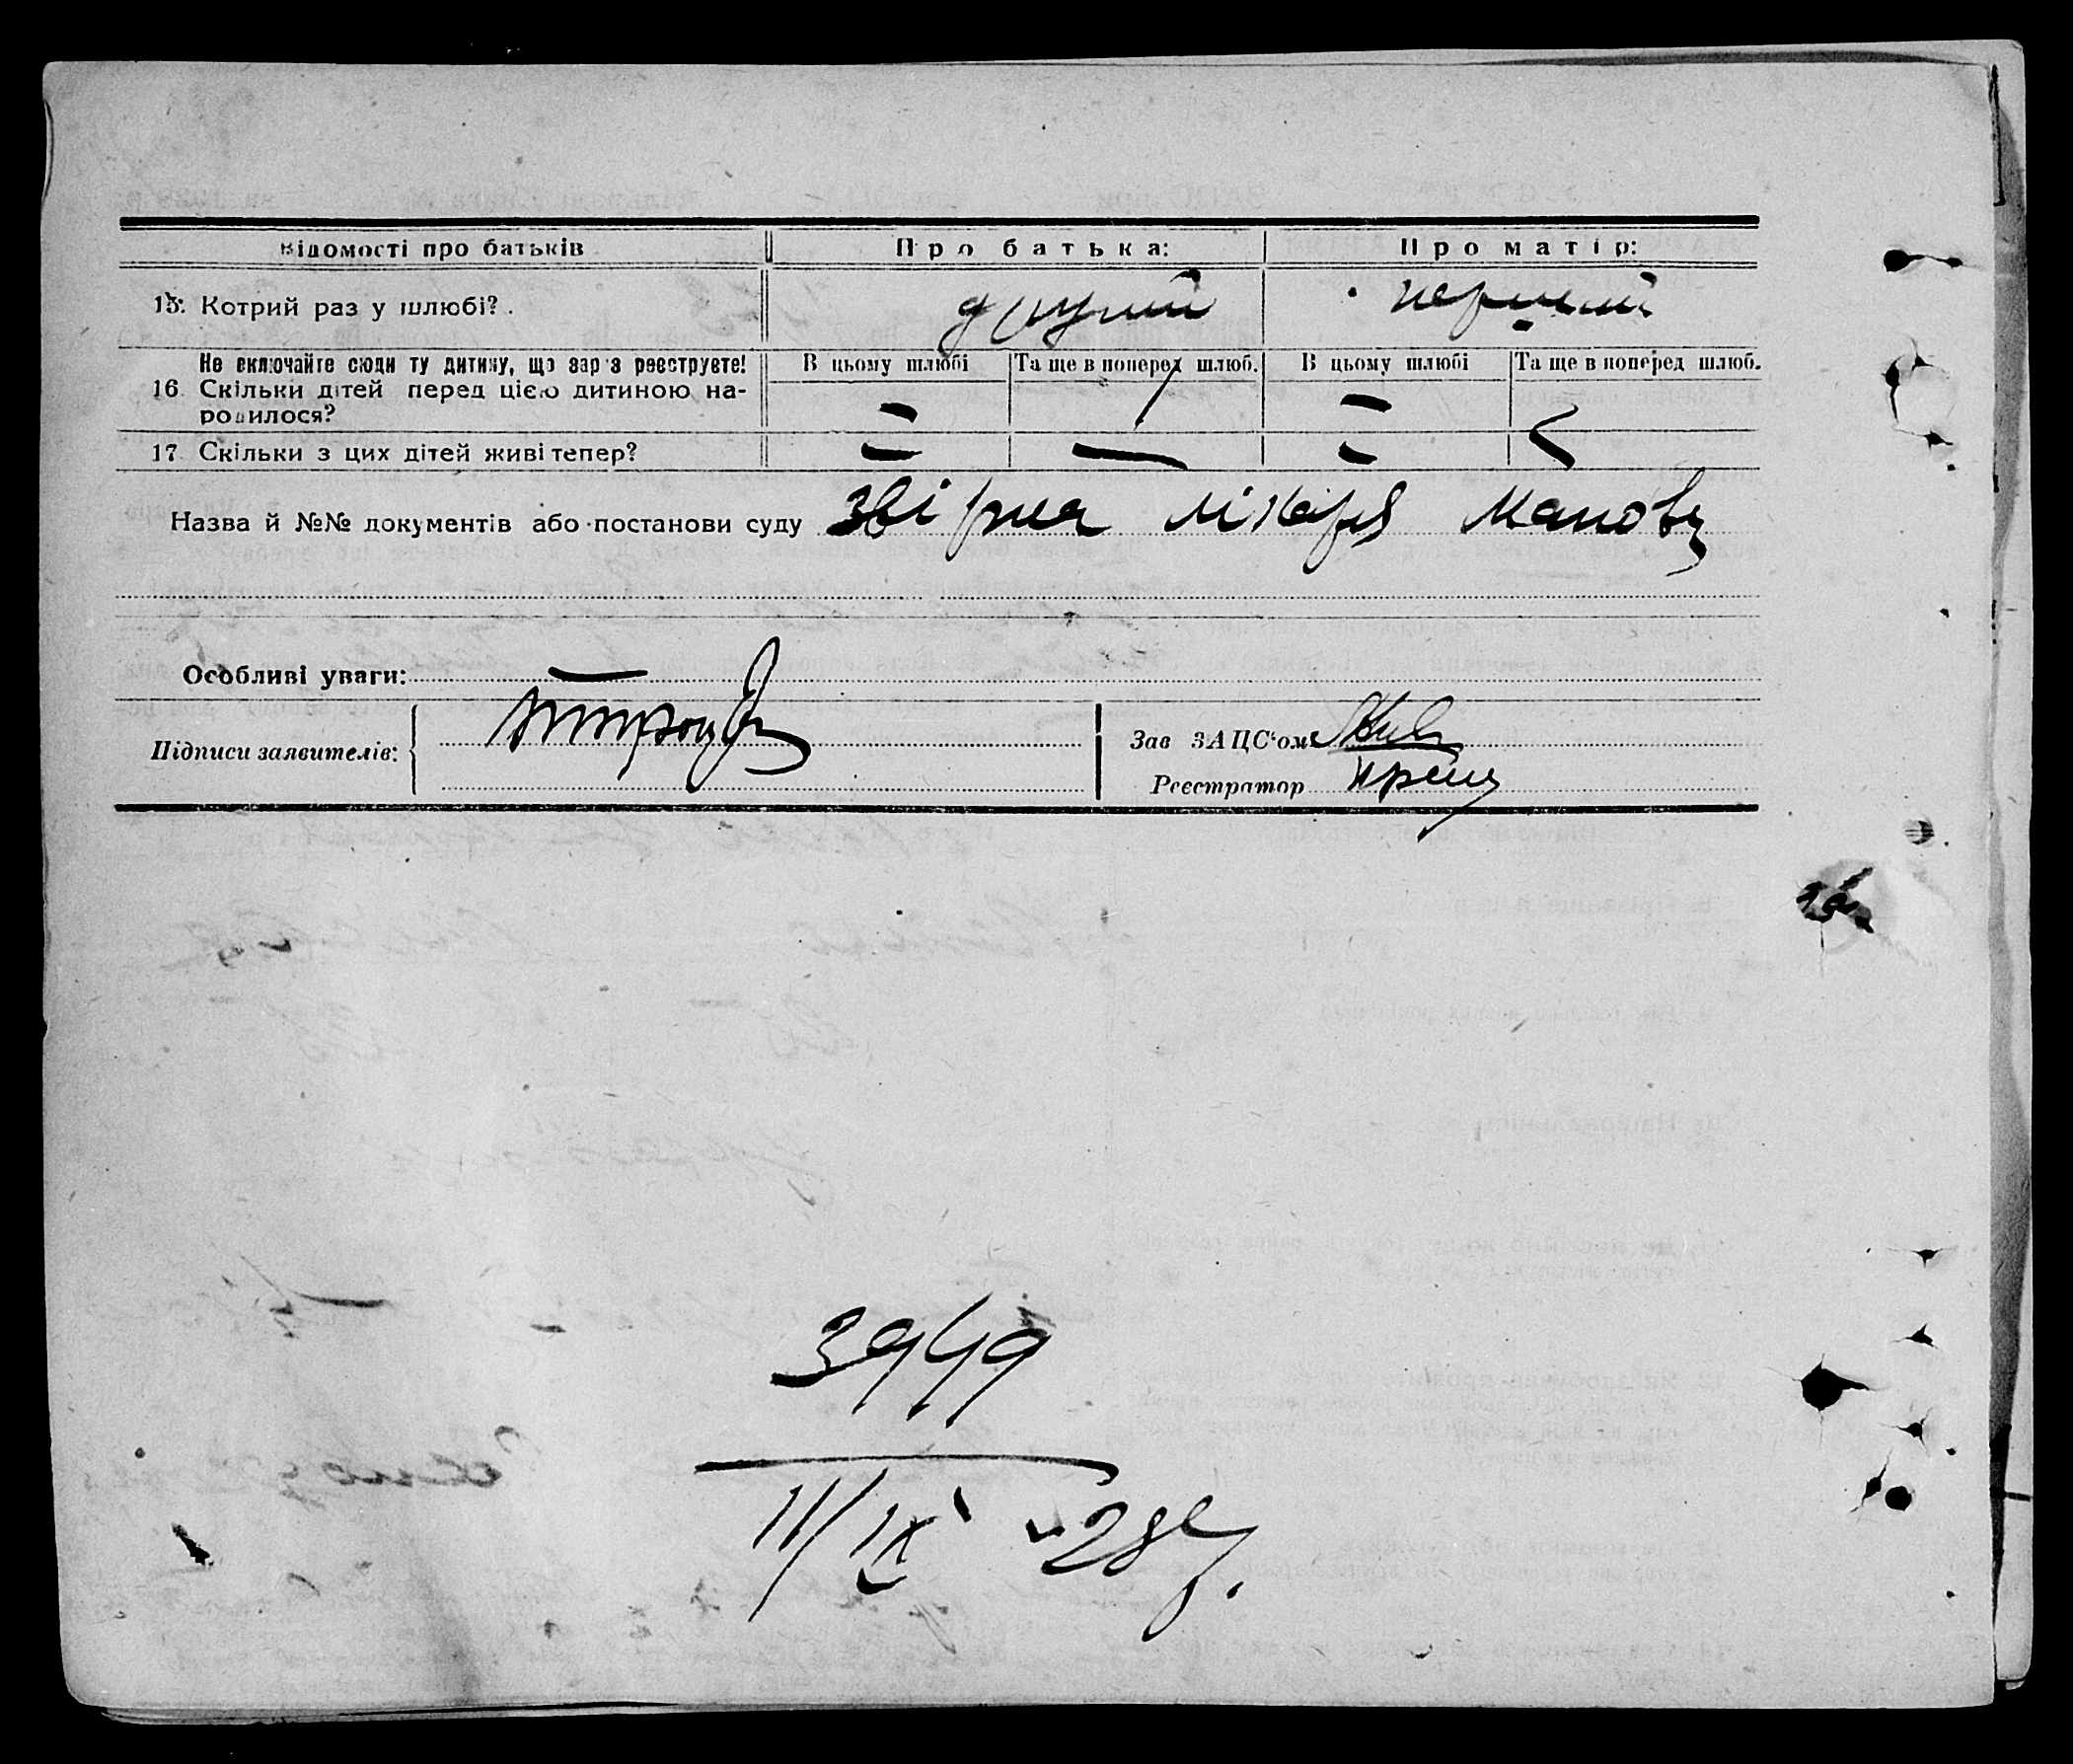 Відомості про батьків Про батька: Про матір:
15. Котрий раз у шлюбі? другий перший
Не включайте сюди ту дитину, що зараз реєструєте! В цьому шлюбі Та ще в поперед шлюб. В цьому шлюбі Та ще в поперед шлюб.
16 Скільки дітей перед цією дитиною на- — 1 —
родилося?
17 Скільки з цих дітей живі тепер? — — —
Назва й №№ документів або постанови суду лікаря
Особливі уваги: —
Підписи заявителів: Зав ЗАЦС'ом
Реєстратор
3949
11/IX 28